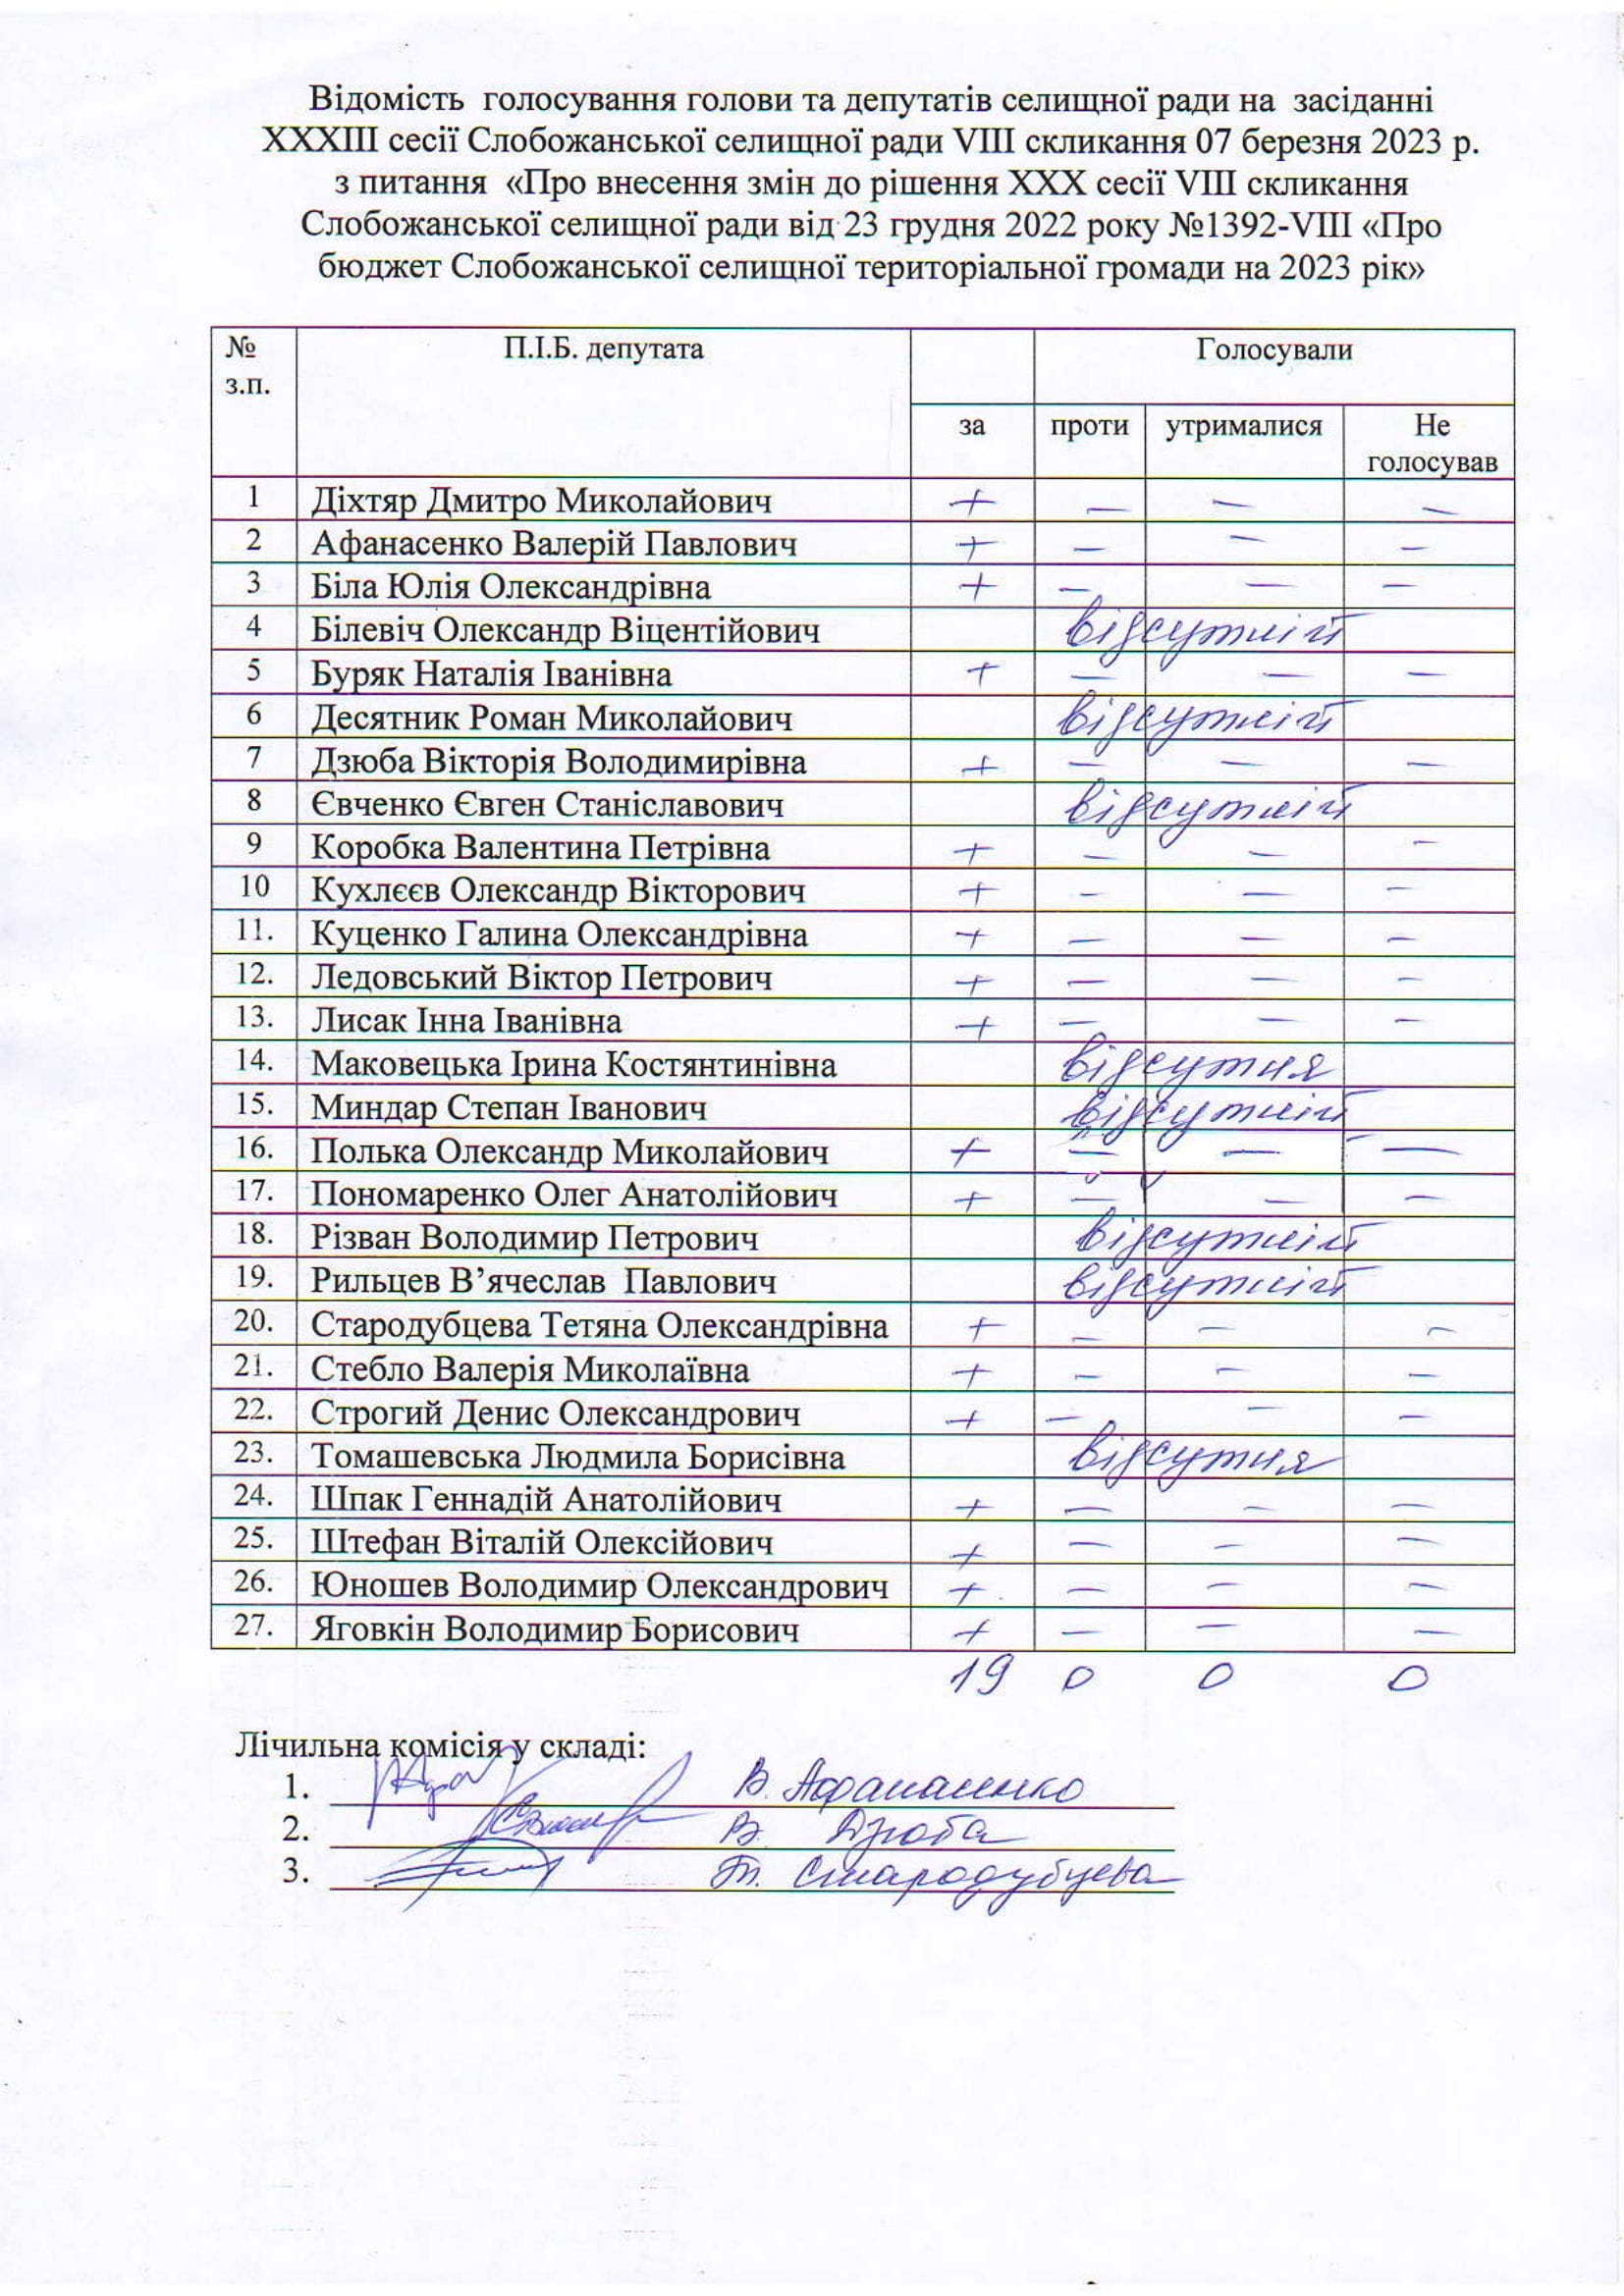 Відомість голосування голови та депутатів селищної ради на засіданні
XXXIII сесії Слобожанської селищної ради VIII скликання 07 березня 2023 р.
з питання «Про внесення змін до рішення XXX сесії VIII скликання
Слобожанської селищної ради від 23 грудня 2022 року №1392-VIII «Про
бюджет Слобожанської селищної територіальної громади на 2023 рік»
№ з.п. П.І.Б. депутата Голосували
за проти утрималися Не голосував
1 Діхтяр Дмитро Миколайович + — — —
2 Афанасенко Валерій Павлович + — — —
3 Біла Юлія Олександрівна + — — —
4 Білевіч Олександр Віцентійович відсутній
5 Буряк Наталія Іванівна + — — —
6 Десятник Роман Миколайович відсутній
7 Дзюба Вікторія Володимирівна + — — —
8 Євченко Євген Станіславович відсутній
9 Коробка Валентина Петрівна + — — —
10 Кухлєєв Олександр Вікторович + — — —
11. Куценко Галина Олександрівна + — — —
12. Ледовський Віктор Петрович + — — —
13. Лисак Інна Іванівна + — — —
14. Маковецька Ірина Костянтинівна відсутня
15. Миндар Степан Іванович відсутній
16. Полька Олександр Миколайович + — — —
17. Пономаренко Олег Анатолійович + — — —
18. Різван Володимир Петрович відсутній
19. Рильцев В’ячеслав Павлович відсутній
20. Стародубцева Тетяна Олександрівна + — — —
21. Стебло Валерія Миколаївна + — — —
22. Строгий Денис Олександрович + — — —
23. Томашевська Людмила Борисівна відсутня
24. Шпак Геннадій Анатолійович + — — —
25. Штефан Віталій Олексійович + — — —
26. Юношев Володимир Олександрович + — — —
27. Яговкін Володимир Борисович + — — —
19 0 0 0
Лічильна комісія у складі:
1. В. Афанасенко
2. В. Дзюба
3. Т. Стародубцева